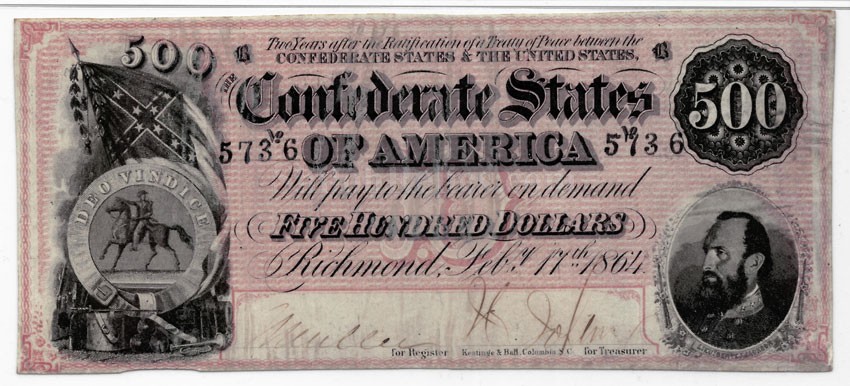 500
B Two Years after the Ratification of a Treaty of Peace between the B
CONFEDERATE STATES & THE UNITED STATES,
THE
Confederate States
500
No 5736 OF AMERICA No 5736
DEO VINDICE
Will pay to the bearer on demand
FIVE HUNDRED DOLLARS
Richmond, Feby. 17th 1864
for Register Keatinge & Ball, Columbia S.C. for Treasurer